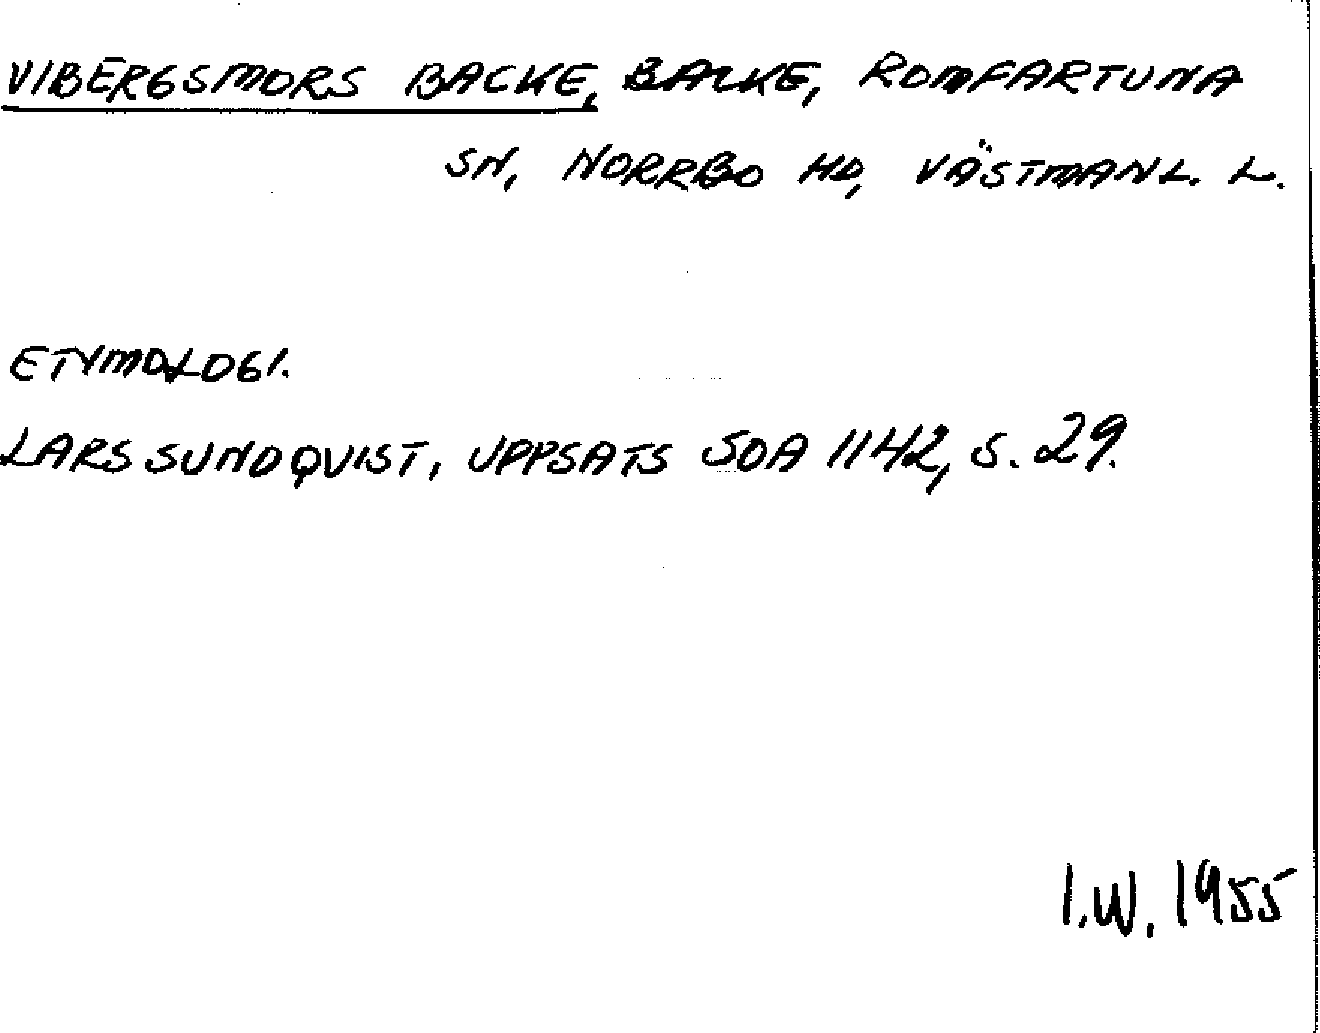 VIBERGSMORS BACKE, BACKE, ROMFARTUNA
SN, NORRBO HD, VÄSTMANL. L.
ETYMOLOGI.
LARS SUNDQVIST, UPPSATS SOA 1142, S. 29.
I.W. 1955